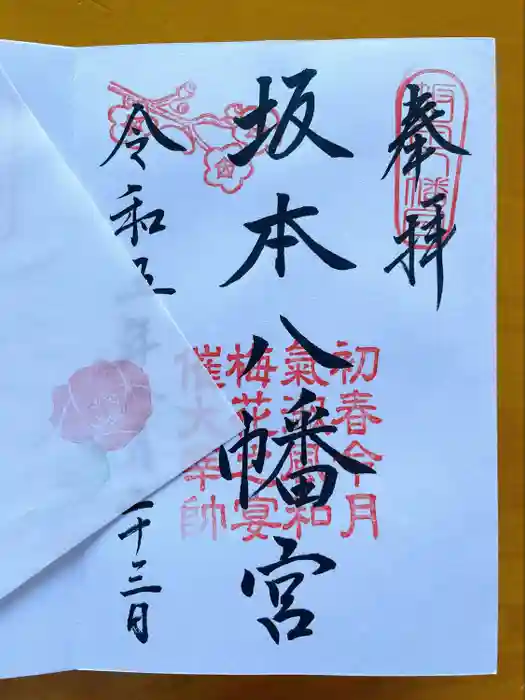 奉拝
坂本八幡宮
初春令月
氣淑風和
梅花之宴
催大宰帥
令和五年
二十三日